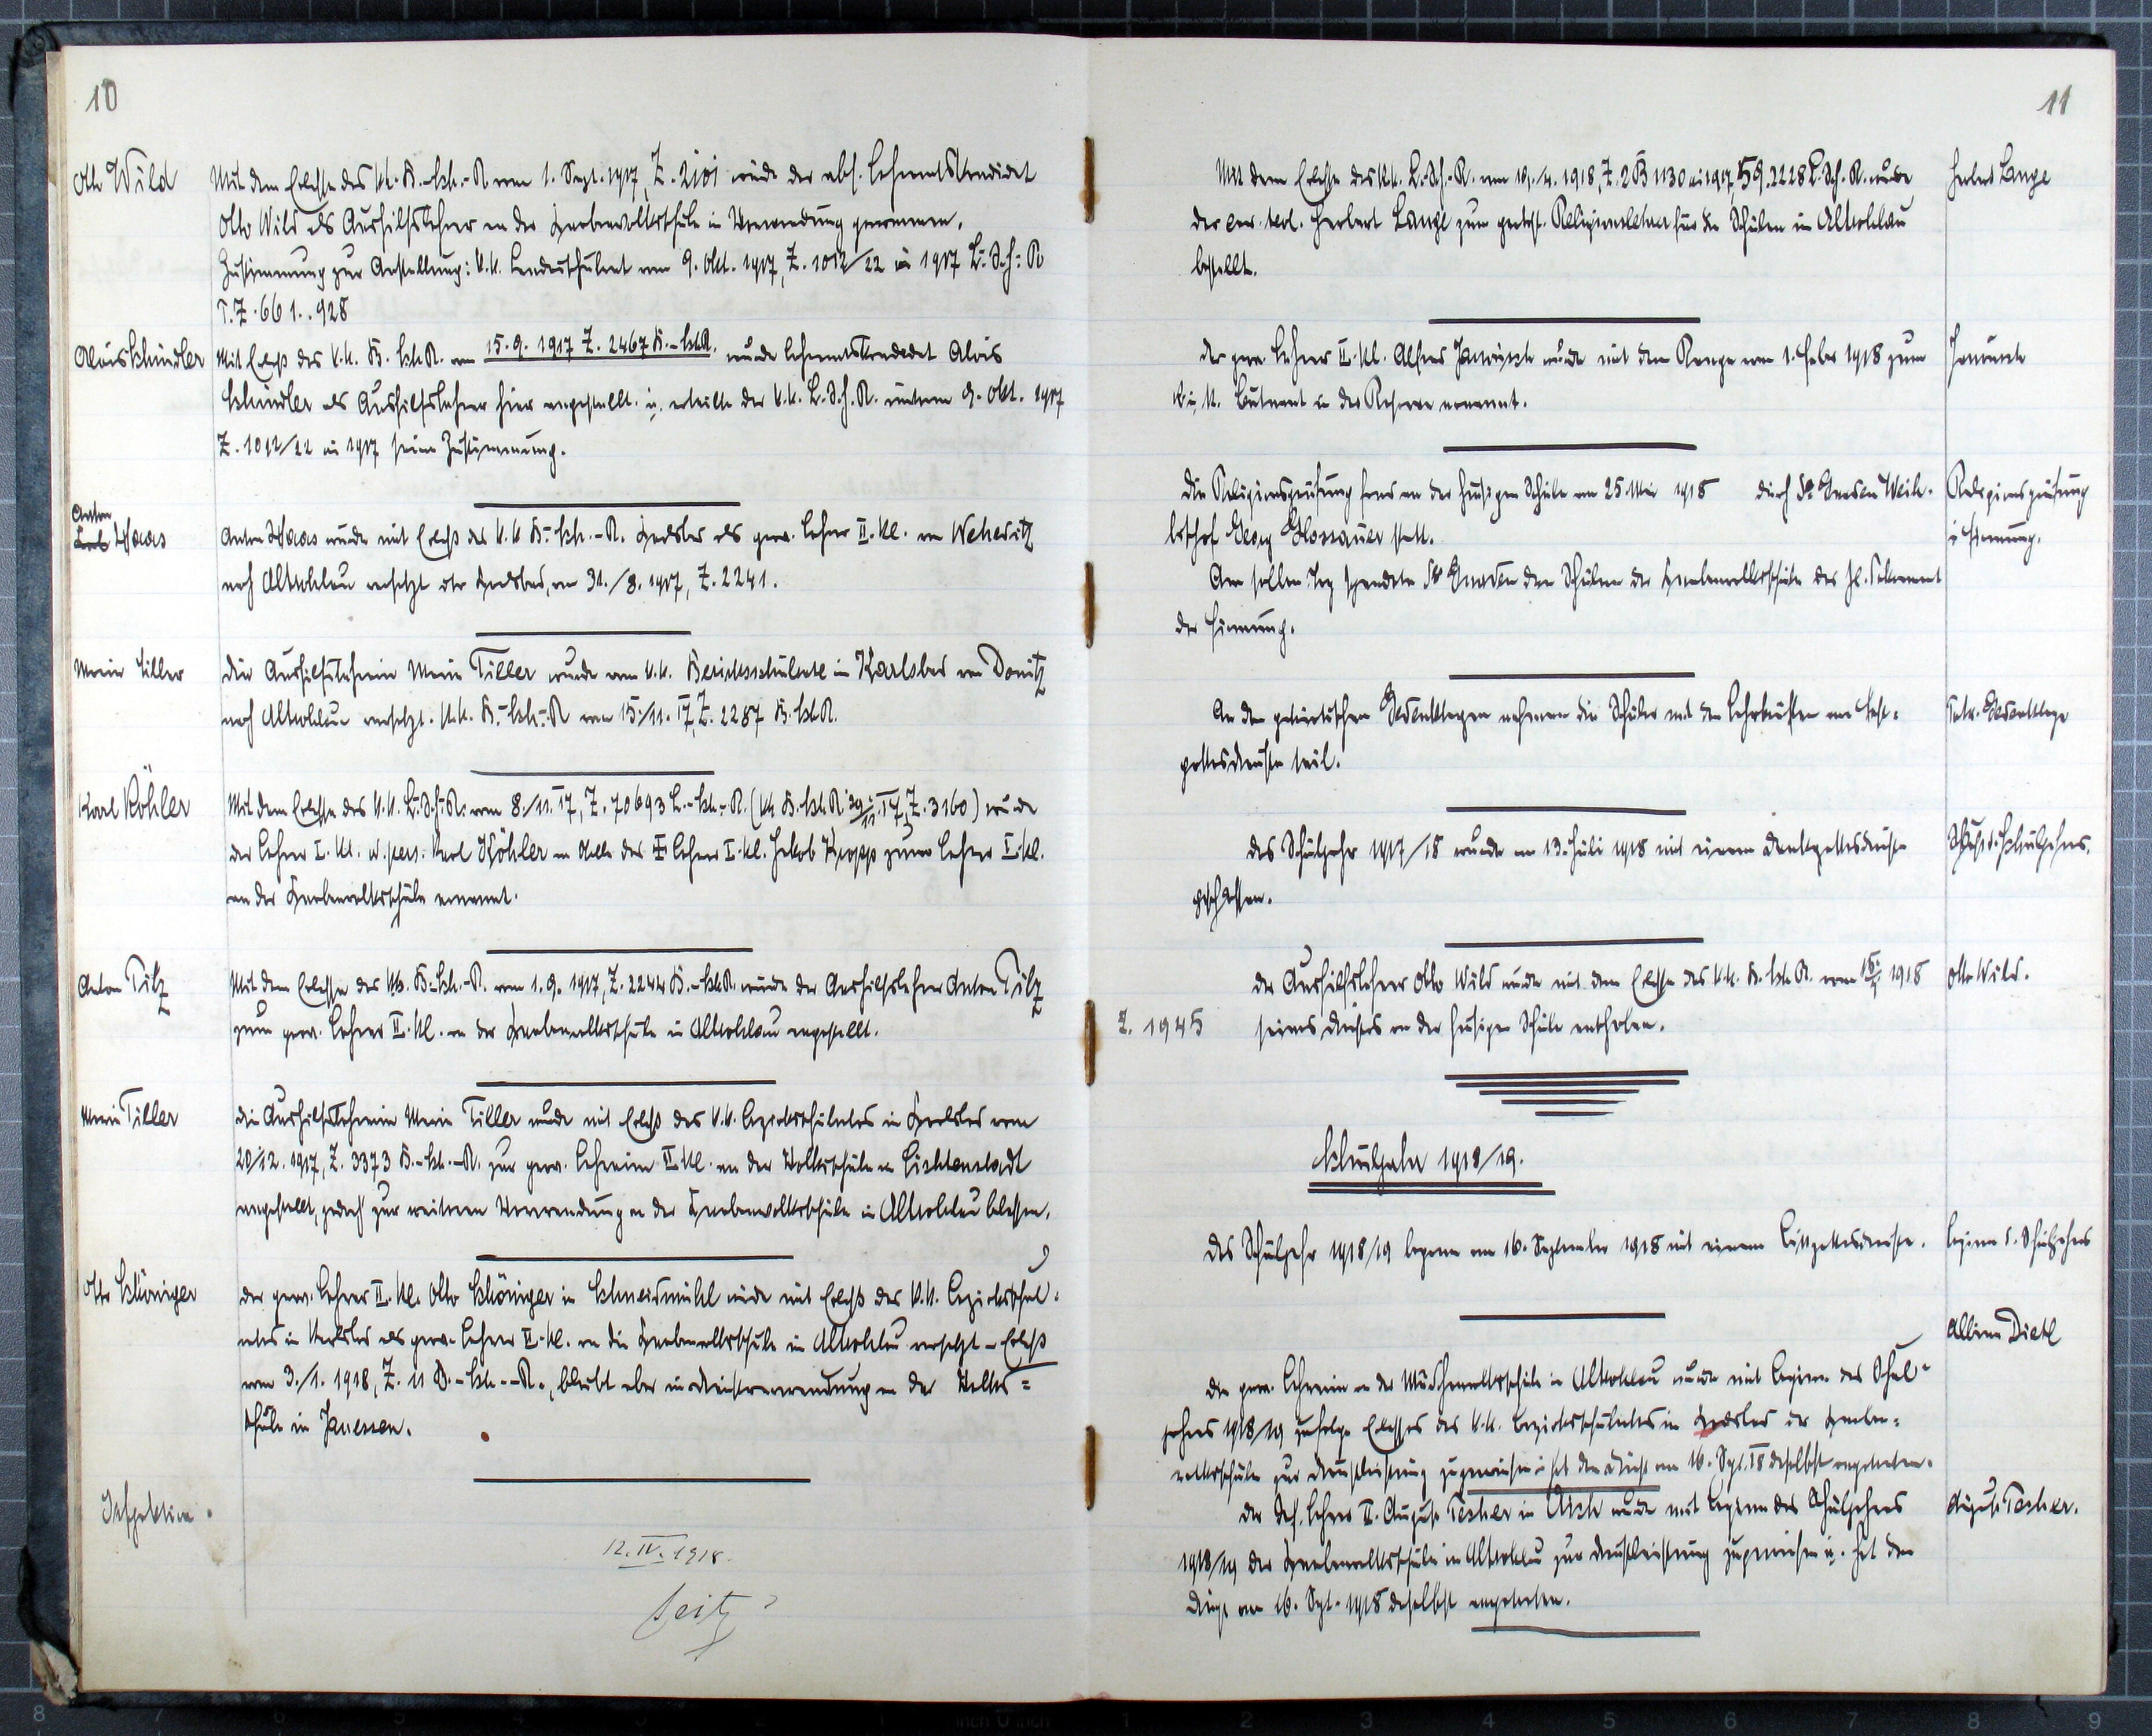 10
Otto Wild
Mit dem Erlasse des k.k. B.-Sch.-R. vom 1. Sept. 1917, Z. 2101 wurde der abs. Lehramtskandidat
Otto Wild als Aushilfslehrer an der Knabenvolksschule in Verwendung genommen.
Zustimmung zur Anstellung: k.k. Landesschulrat vom 9. Okt. 1917, Z. 1012/22 ai 1917 L.-Sch.-R
T.Z. 661..928
Alois Schindler
Mit Erlaß des k.k. B. Sch R. vom 15.9.1917 Z. 2467 B.-Sch R. wurde Lehramtskandidat Alois
Schindler als Aushilfslehrer hier angestellt u. erteilte der k.k. L.-Sch.-R. unterm 9. Okt. 1917
Z. 1012/22 ai 1917 seine Zustimmung.
Anton
Haas
Anton Haas wurde mit Erlaß des k.k. B.-Sch.-R. Karlsbad als prov. Lehrer II. Kl. von Weheditz
nach Altrohlau versetzt Karlsbad, am 31./8. 1917, Z. 2241.
Marie Tiller
Die Aushilfslehrerin Marie Tiller wurde vom k.k. Bezirksschulrate in Karlsbad von Donitz
nach Altrohlau versetzt. k.k. B.-Sch.-R vom 15./11. 17, Z. 2287 B. Sch R.
Karl Köhler
Mit dem Erlasse des k.k. L.-Sch.-R. vom 8./11. 17, Z. 70693 L.-Sch.-R. (kk B. Sch R. 29/11. 17, Z. 3160) wurde
der Lehrer I. Kl. Karl Köhler an Stelle des Lehrer I. Kl. Jakob Kropp zum Lehrer I. Kl.
an der Knabenvolksschule ernannt.
Anton Tilz
Mit dem Erlasse des kk. B.-Sch.-R. vom 1.9.1917, Z. 2244 B.-Sch R. wurde der Aushilfslehrer Anton Tilz
zum prov. Lehrer II. Kl. an der Knabenvolksschule in Altrohlau angestellt.
Marie Tiller
Die Aushilfslehrerin Marie Tiller wurde mit Erlaß des k.k. Bezirksschulrates in Karlsbad vom
20/12. 1917, Z. 3373 B.-Sch.-R. zur prov. Lehrerin II. Kl. an der Volksschule in Lichtenstadt
angestellt, jedoch zur weiteren Verwendung an der Knabenvolksschule in Altrohlau belassen.
Otto Schöniger
Der prov. Lehrer II. Kl. Otto Schöniger in Schneidmühl wurde mit Erlaß des k.k. Bezirksschul-
rates in Karlsbad als prov. Lehrer II. Kl. an die Knabenvolksschule in Altrohlau versetzt - Erlaß
vom 3./1. 1918, Z. 11 B.-Sch.-R., bleibt aber in Dienstverwendung an der Volks=
schule in Janessen.
Inspektion.
12. IV. 1918.
Seitz
11
Mit dem Erlasse des kk. L.-Sch.-R. vom 10./4. 1918, Z. 2 B 1130 ai 1917, 59.2228 L. Sch. R. wurde
der Herbert Lange zum Religionslehrer für die Schulen in Altrohlau
bestellt.
Herbert Lange
Der prov. Lehrer II. Kl. Alfred wurde mit dem Range vom 1. Feber 1918 zum
k. u. k. Leutnant in der Reserve ernannt.
Die Religionsprüfung fand an der hiesigen Schule am 25. Mai 1918 durch Se Gnaden Weih-
bischof Georg Glossauer statt.
Religionsprüfung
u. Firmung.
Am selben Tag spendete Se Gnaden den Schülern der Knabenvolksschule das hl. Sakrament
der Firmung.
An den patriotischen Gedenktagen nahmen die Schüler mit den Lehrkräften am Fest-
gottesdienste teil.
Patr. Gedenktage
Das Schuljahr 1917/18 wurde am 13. Juli 1918 mit einem Dankgottesdienste
geschlossen.
Schluß d. Schuljahres.
Der Aushilfslehrer Otto Wild wurde mit dem Erlasse des k.k. B. Sch R. vom 1918
Otto Wild.
Z. 1945 seines Dienstes an der hiesigen Schule enthoben.
Schuljahr 1918/19.
Das Schuljahr 1918/19 begann am 16. September 1918 mit einem Bittgottesdienste.
Beginn d. Schuljahres
Albine Dietl
Die prov. Lehrerin an der Mädchenvolksschule in Altrohlau wurde mit Beginn des Schul-
jahres 1918/19 zufolge Erlasses des k.k. Bezirksschulrates in Karlsbad der Knaben-
volksschule zur Dienstleistung zugewiesen u. hat den Dienst am 16. Sept. 18 daselbst angetreten.
Der def. Lehrer II. August Tescher in Asch wurde mit Beginn des Schuljahres
August Tescher.
1918/19 der Knabenvolksschule in Altrohlau zur Dienstleistung zugewiesen u. hat den
Dienst am 16. Sept. 1918 daselbst angetreten.